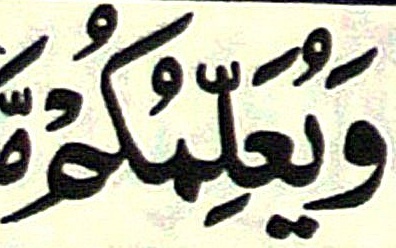 وَيُعَلِّمُكُمْ